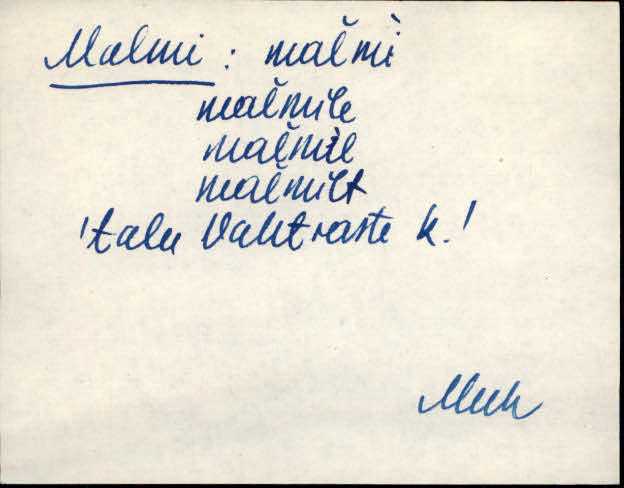 Malmi : mal̆mi
mal̆mile
mal̆mil
mal̆milt
'talu Vahtraste k.'
Muh